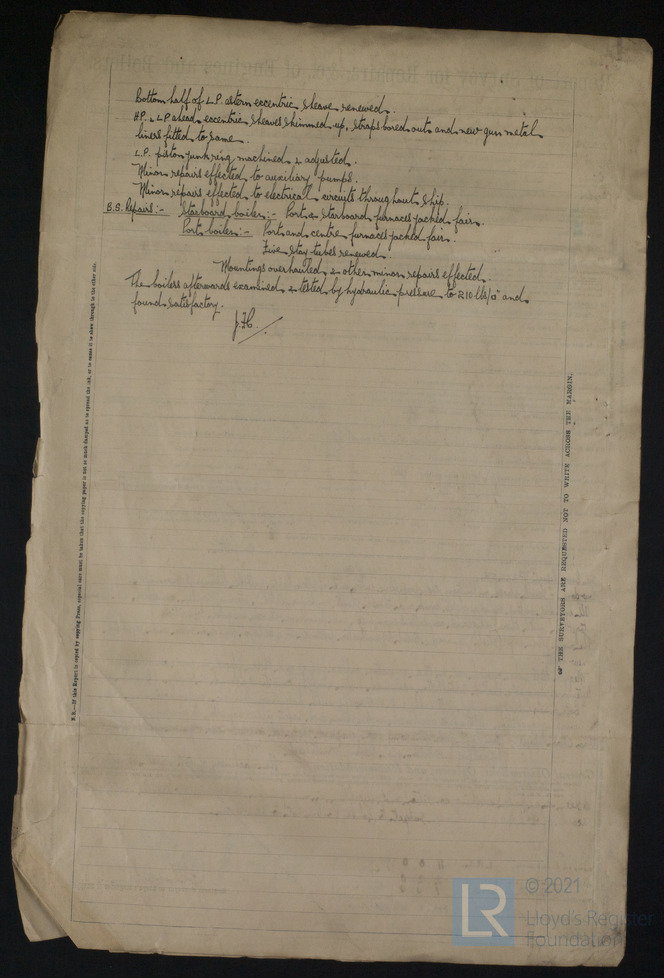 Bottom half of L.P. astern eccentric sheave renewed.
H.P. & L.P. ahead eccentric sheaves skimmed up, straps bored out and new gun metal
liners fitted to same.
L.P. piston junk ring machined & adjusted.
Minor repairs effected to auxiliary pumps.
Minor repairs effected to electrical circuits throughout ship.
B.S. Repairs:- Starboard boiler:- Port & Starboard furnaces jacked fair.
Port boiler:- Port and centre furnaces jacked fair.
Five stay tubes renewed.
Mountings overhauled & other minor repairs effected.
The boilers afterwards examined & tested by hydraulic pressure to 210 lbs/□" and
found satisfactory.
N.B.—If this Report is copied by copying Press, especial care must be taken that the copying paper is not so much damped as to spread the ink, or to cause it to show through to the other side.
THE SURVEYORS ARE REQUESTED NOT TO WRITE ACROSS THE MARGIN.
LR
© 2021
Lloyd's Register
Foundation